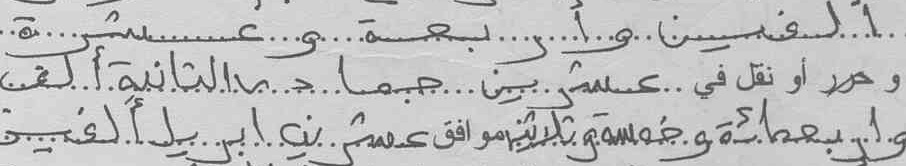 ألفين وأربعة وعشرة
و حرر أو نقل في عشرين جمادى الثانية ألف
واربعمائة وخمسة وثلاثين موافق عشرين ابريل ألفين